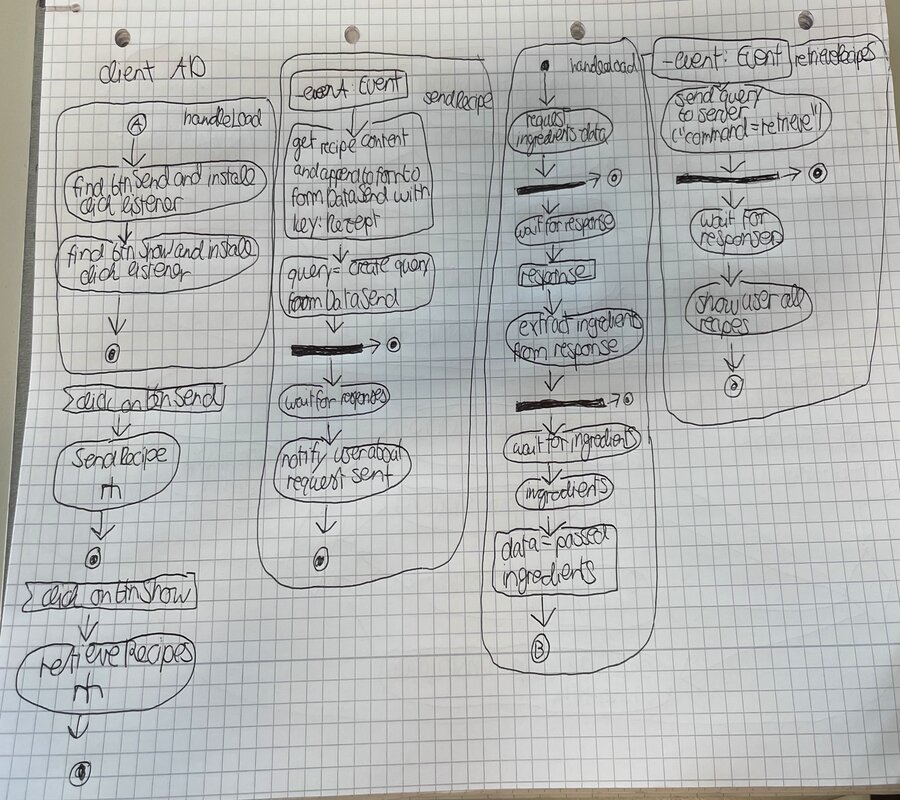 client AD
handleLoad
A
find btn Send and install
click listener
find btn Show and install
click listener
click on btn Send
SendRecipe
click on btn Show
retrieveRecipes
-event: Event
sendRecipe
get recipe content
and append to form to
form Data Send with
key: Rezept
query = create query
from Data Send
wait for responses
notify user about
request sent
handleLoad
request
ingredients data
wait for response
response
extract ingredients
from response
wait for ingredients
ingredients
data = passed
ingredients
B
-event: Event
retrieveRecipes
send query
to server
("command=retrieve")
wait for
responses
show user all
recipes